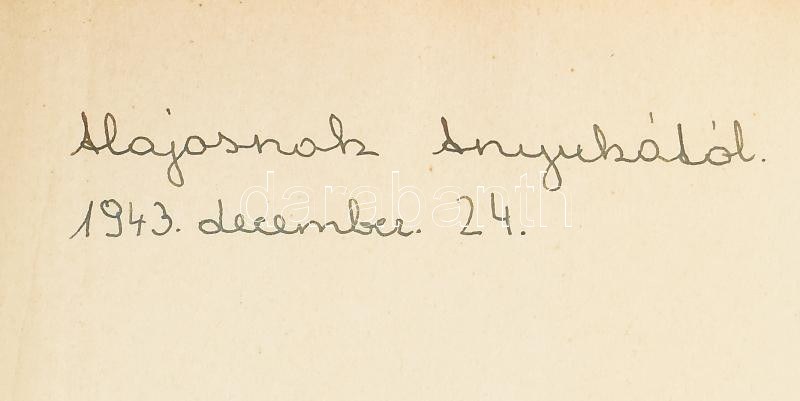 Alajosnak Anyukától.
1943. december. 24.
darabanth